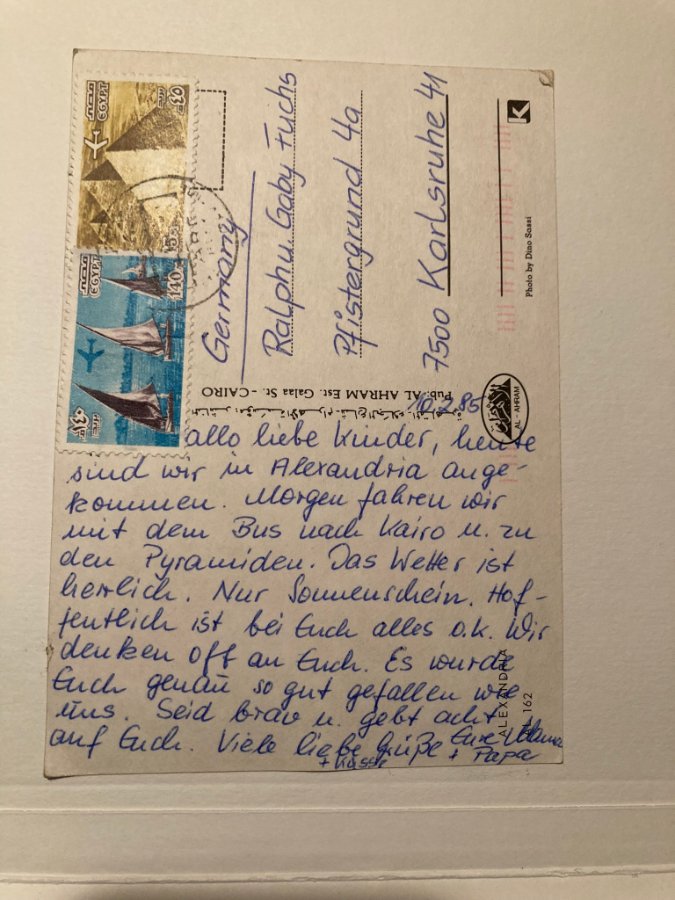 10.2.85
allo liebe Kinder, heute
sind wir in Alexandria ange-
kommen. Morgen fahren wir
mit dem Bus nach Kairo u. zu
den Pyramiden. Das Wetter ist
herrlich. Nur Sonnenschein. Hof-
fentlich ist bei Euch alles o.k. Wir
denken oft an Euch. Es wurde
Euch genau so gut gefallen wie
uns. Seid brav u. gebt acht
auf Euch. Viele liebe Grüße Eure Mama
+ Küsse + Papa
Germany
Ralph u. Gaby Fuchs
Pfistergrund 4a
7500 Karlsruhe 41
Pub. AL AHRAM Est. Galaa St. - CAIRO
AL - AHRAM
Photo by Dino Sassi
K
ALEXANDRIA
AL 162
EGYPT
مصر
٤٥
EGYPT
مصر
140
١٤٠